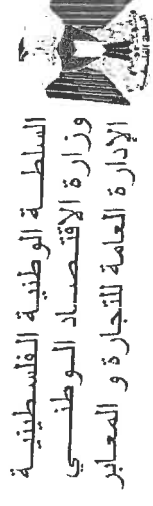 السلطة الوطنية الفلسطينية
وزارة الاقتصاد الوطني
الإدارة العامة للتجارة و المعابر